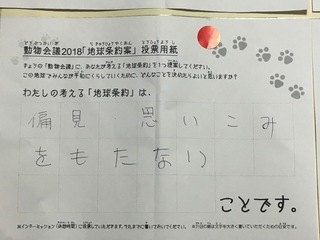 動物会議2018「地球条約案」投票用紙
きょうの「動物会議」に、あなたが考える「地球条約」を1つ提案してください。
この地球でみんなが平和にくらしていくために、どんなことを決めたらよいと思いますか?
わたしの考える「地球条約」は、
偏見 思いこみ
をもたない
ことです。